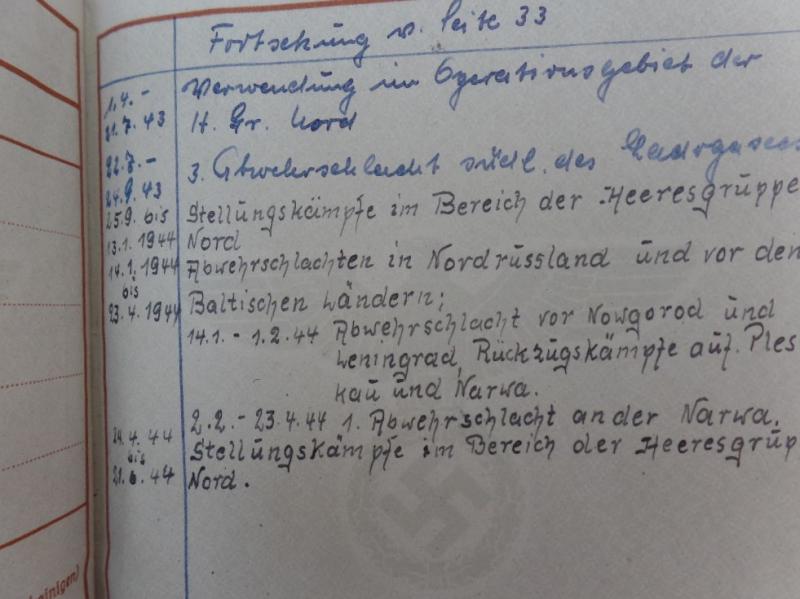 Fortsetzung v. Seite 33
1.4. - Verwendung im Operationsgebiet der
21.7.43 H. Gr. Nord
22.7. -
24.9.43 3. Abwehrschlacht südl. des Ladogasees
25.9. bis Stellungskämpfe im Bereich der Heeresgruppe
13.1.1944 Nord
14.1.1944 Abwehrschlachten in Nordrussland und vor den
bis
23.4.1944 Baltischen Ländern;
14.1. - 1.2.44 Abwehrschlacht vor Nowgorod und
Leningrad, Rückzugskämpfe auf. Ples
kau und Narwa.
2.2. - 23.4.44 1. Abwehrschlacht an der Narwa.
24.4.44 Stellungskämpfe im Bereich der Heeresgrup
bis
21.6.44 Nord.
einigen)